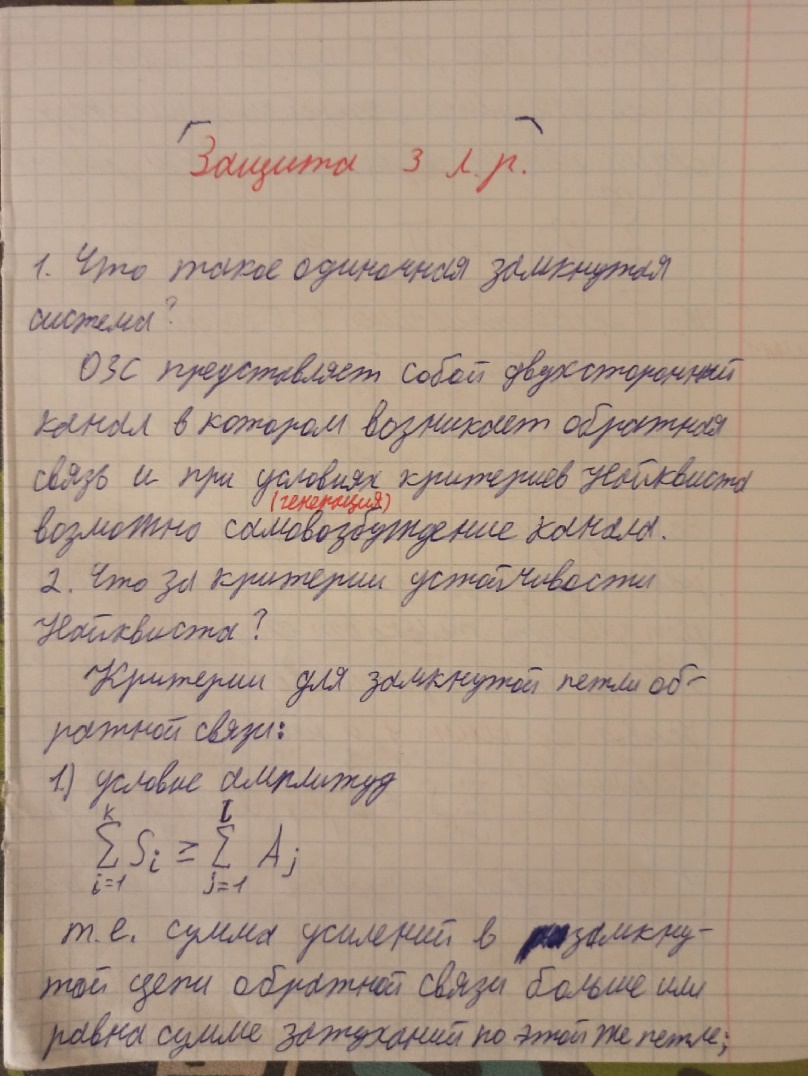 Защита 3 л.р.
1. Что такое одиночная замкнутая
система?
ОЗС представляет собой двухсторонний
канал в котором возникает обратная
связь и при условиях критериев Найквиста
(генерация)
возможно самовозбуждение канала.
2. Что за критерии устойчивости
Найквиста?
Критерии для замкнутой петли об-
ратной связи:
1.) условие амплитуд
k l
∑ Si ≥ ∑ Aj
i=1 j=1
т.е. сумма усилений в замкну-
той цепи обратной связи больше или
равна сумме затуханий по этой же петле;